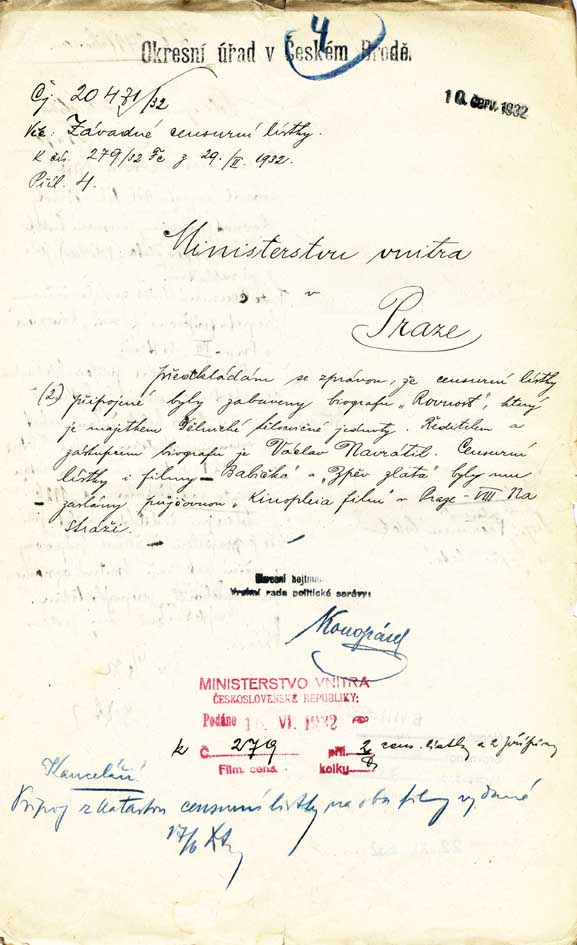 4
Okresní úřad v Českém Brodě.
Čj. 20471/32
10. červ. 1932
Věc: Závadné censurní lístky.
K čís. 279/32 Fc z 29./II. 1932.
Příl. 4.
Ministerstvu vnitra
v
Praze
předkládám se zprávou, že censurní lístky
(2) připojené byly zabaveny biografu „Rovnost", který
je majetkem Dělnické tělocvičné jednoty. Ředitelem a
zástupcem biografu je Václav Navrátil. Censurní
lístky i filmy Babička a „Zpěv zlata" byly mu
zaslány půjčovnou „Kinopleia film" v Praze - VIII Na
stráži.
Okresní hejtman
Vrchní rada politické správy:
Konopásek
MINISTERSTVO VNITRA
ČESKOSLOVENSKÉ REPUBLIKY:
Podáno VI. 1932
k Č. 279 příl. 2 cens. lístky a 2
Film. cens. kolky
Kancelář!
Připoj censurní lístky na oba filmy vydané
17/6